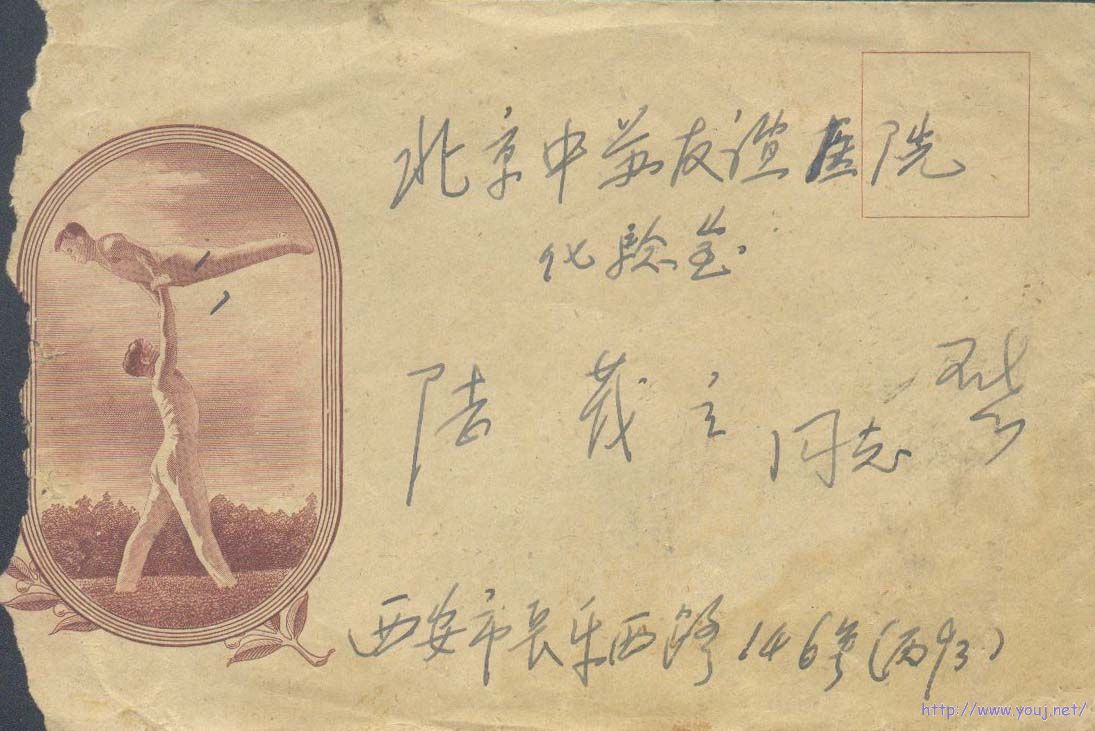 北京中苏友谊医院
化验室
陆茂立 同志 啓
西安市长乐西路146号(丙93)
http://www.youj.net/